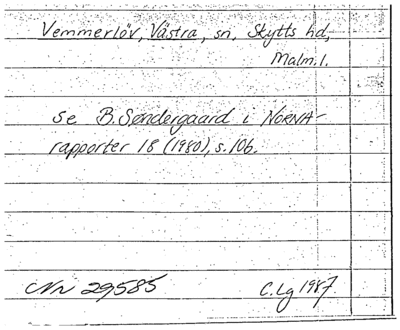 Vemmerlöv, Västra, sn, Skytts hd,
Malm. l.
se B. Søndergaard i NORNA-
rapporter 18 (1980), s. 106.
Nr 29585 C. Lg 1987